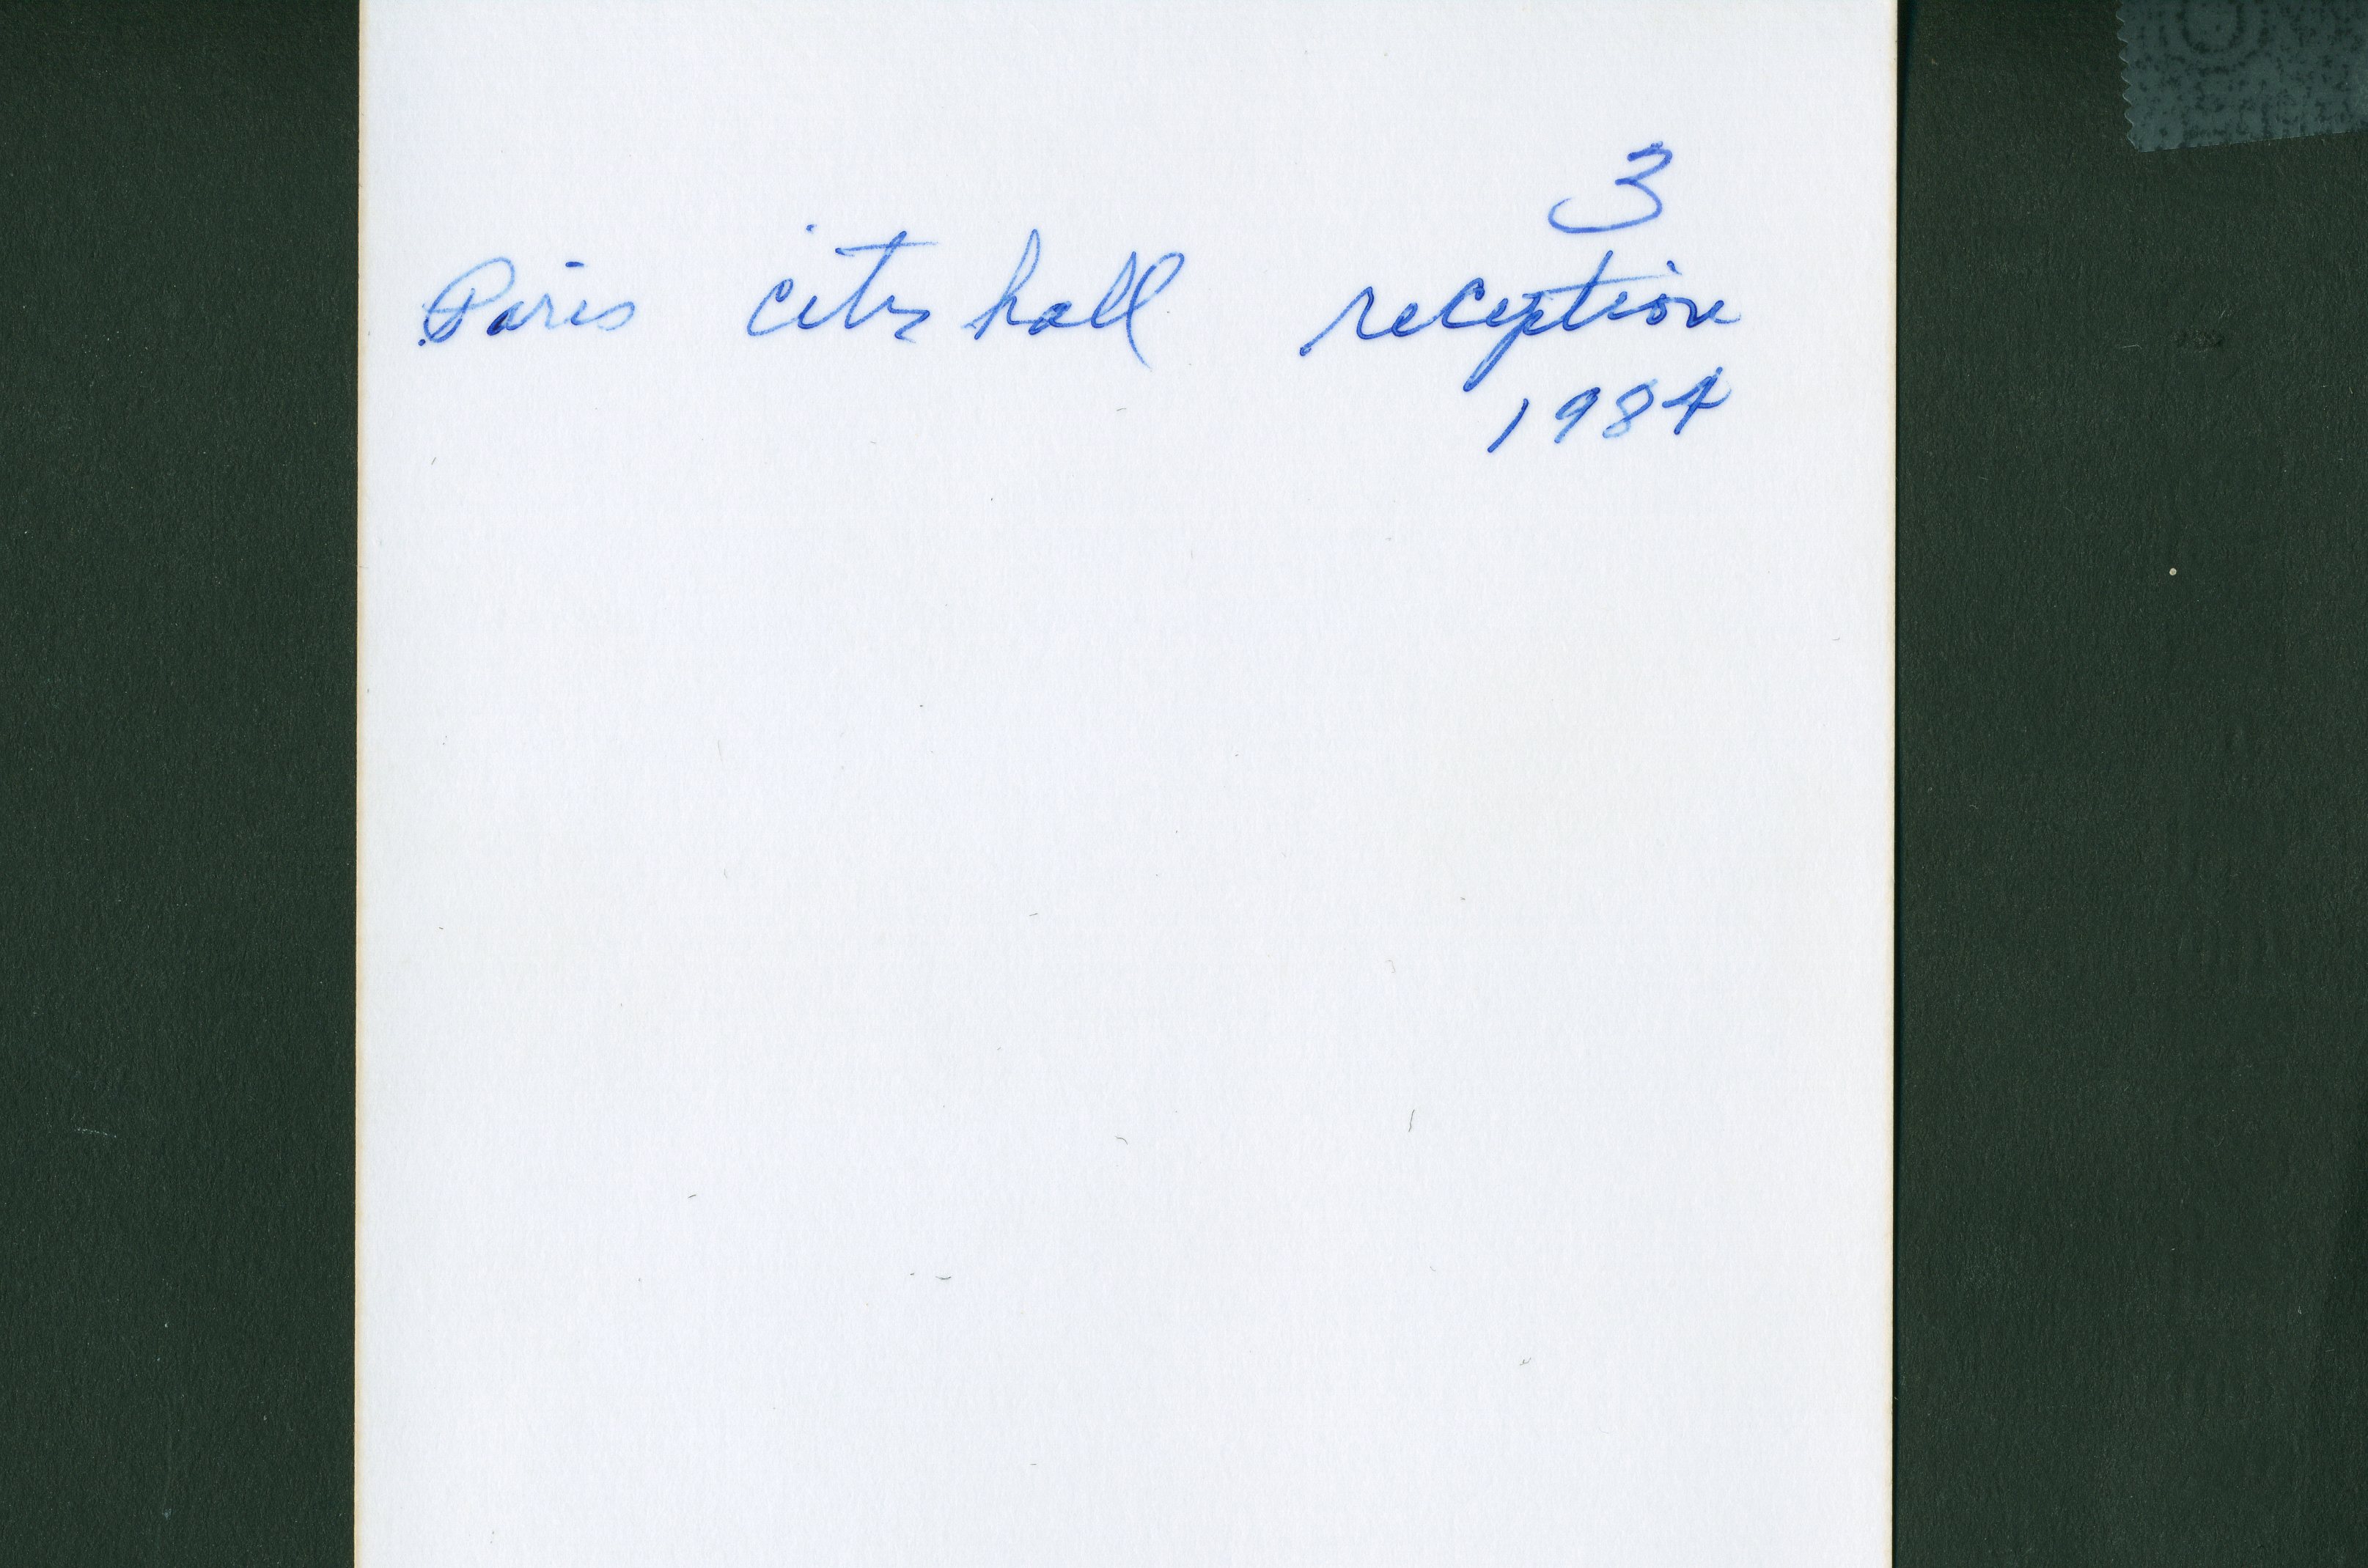 3
Paris city hall reception
1984